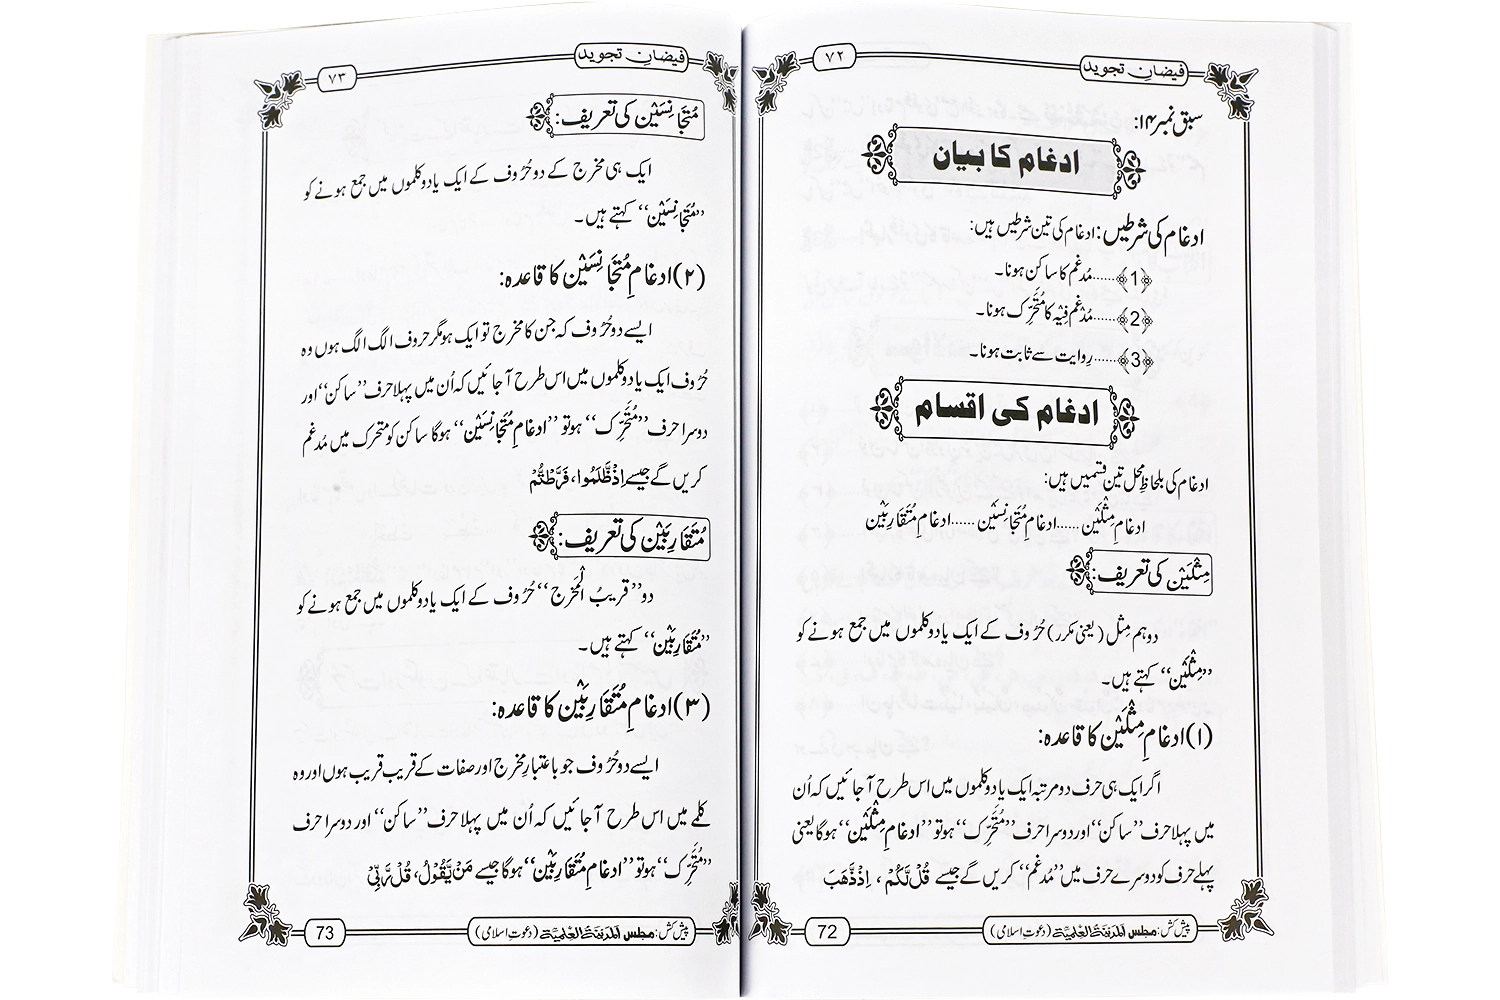 فیضانِ تجوید
۷۲
سبق نمبر ۱۴:
ادغام کا بیان
ادغام کی شرطیں: ادغام کی تین شرطیں ہیں:
﴿1﴾......مُدغم کا ساکن ہونا۔
﴿2﴾......مُدْغم فِیْہ کا مُتَحَرِّک ہونا۔
﴿3﴾......رِوایت سے ثابت ہونا۔
ادغام کی اقسام
ادغام کی بلحاظِ محل تین قسمیں ہیں:
ادغامِ مِثْلَیْن......ادغامِ مُتَجَانِسَیْن......ادغامِ مُتَقَارِبَیْن
مِثْلَیْن کی تعریف:
دو ہم مِثل (یعنی مکرر) حُرُوف کے ایک یا دو کلموں میں جمع ہونے کو
”مِثْلَیْن“ کہتے ہیں۔
(۱) ادغامِ مِثْلَیْن کا قاعدہ:
اگر ایک ہی حرف دو مرتبہ ایک یا دو کلموں میں اس طرح آ جائیں کہ اُن
میں پہلا حرف ”ساکن“ اور دوسرا حرف ”مُتَحَرِّک“ ہو تو ”ادغامِ مِثْلَیْن“ ہو گا یعنی
پہلے حرف کو دوسرے حرف میں ”مُدغم“ کریں گے جیسے قُلْ لَّکُمْ ، اِذْ ذَّهَبَ
پیش کش: مجلس المدینۃ العلمیۃ (دعوتِ اسلامی)
72
فیضانِ تجوید
۷۳
مُتَجَانِسَیْن کی تعریف:
ایک ہی مخرج کے دو حُرُوف کے ایک یا دو کلموں میں جمع ہونے کو
”مُتَجَانِسَیْن“ کہتے ہیں۔
(۲) ادغامِ مُتَجَانِسَیْن کا قاعدہ:
ایسے دو حُرُوف کہ جن کا مخرج تو ایک ہو مگر حروف الگ الگ ہوں وہ
حُرُوف ایک یا دو کلموں میں اس طرح آ جائیں کہ اُن میں پہلا حرف ”ساکن“ اور
دوسرا حرف ”مُتَحَرِّک“ ہو تو ”ادغامِ مُتَجَانِسَیْن“ ہو گا ساکن کو متحرک میں مُدغم
کریں گے جیسے اِذْ ظَّلَمُوا، فَرَّطْتُّمْ
مُتَقَارِبَیْن کی تعریف:
دو ”قریبُ الْمَخْرَج“ حُرُوف کے ایک یا دو کلموں میں جمع ہونے کو
”مُتَقَارِبَیْن“ کہتے ہیں۔
(۳) ادغامِ مُتَقَارِبَیْن کا قاعدہ:
ایسے دو حُرُوف جو باعتبارِ مخرج اور صفات کے قریب قریب ہوں اور وہ
کلمے میں اس طرح آ جائیں کہ اُن میں پہلا حرف ”ساکن“ اور دوسرا حرف
”مُتَحَرِّک“ ہو تو ”ادغامِ مُتَقَارِبَیْن“ ہو گا جیسے مَنْ یَّقُوْلُ، قُلْ رَّبِّیْ
پیش کش: مجلس المدینۃ العلمیۃ (دعوتِ اسلامی)
73